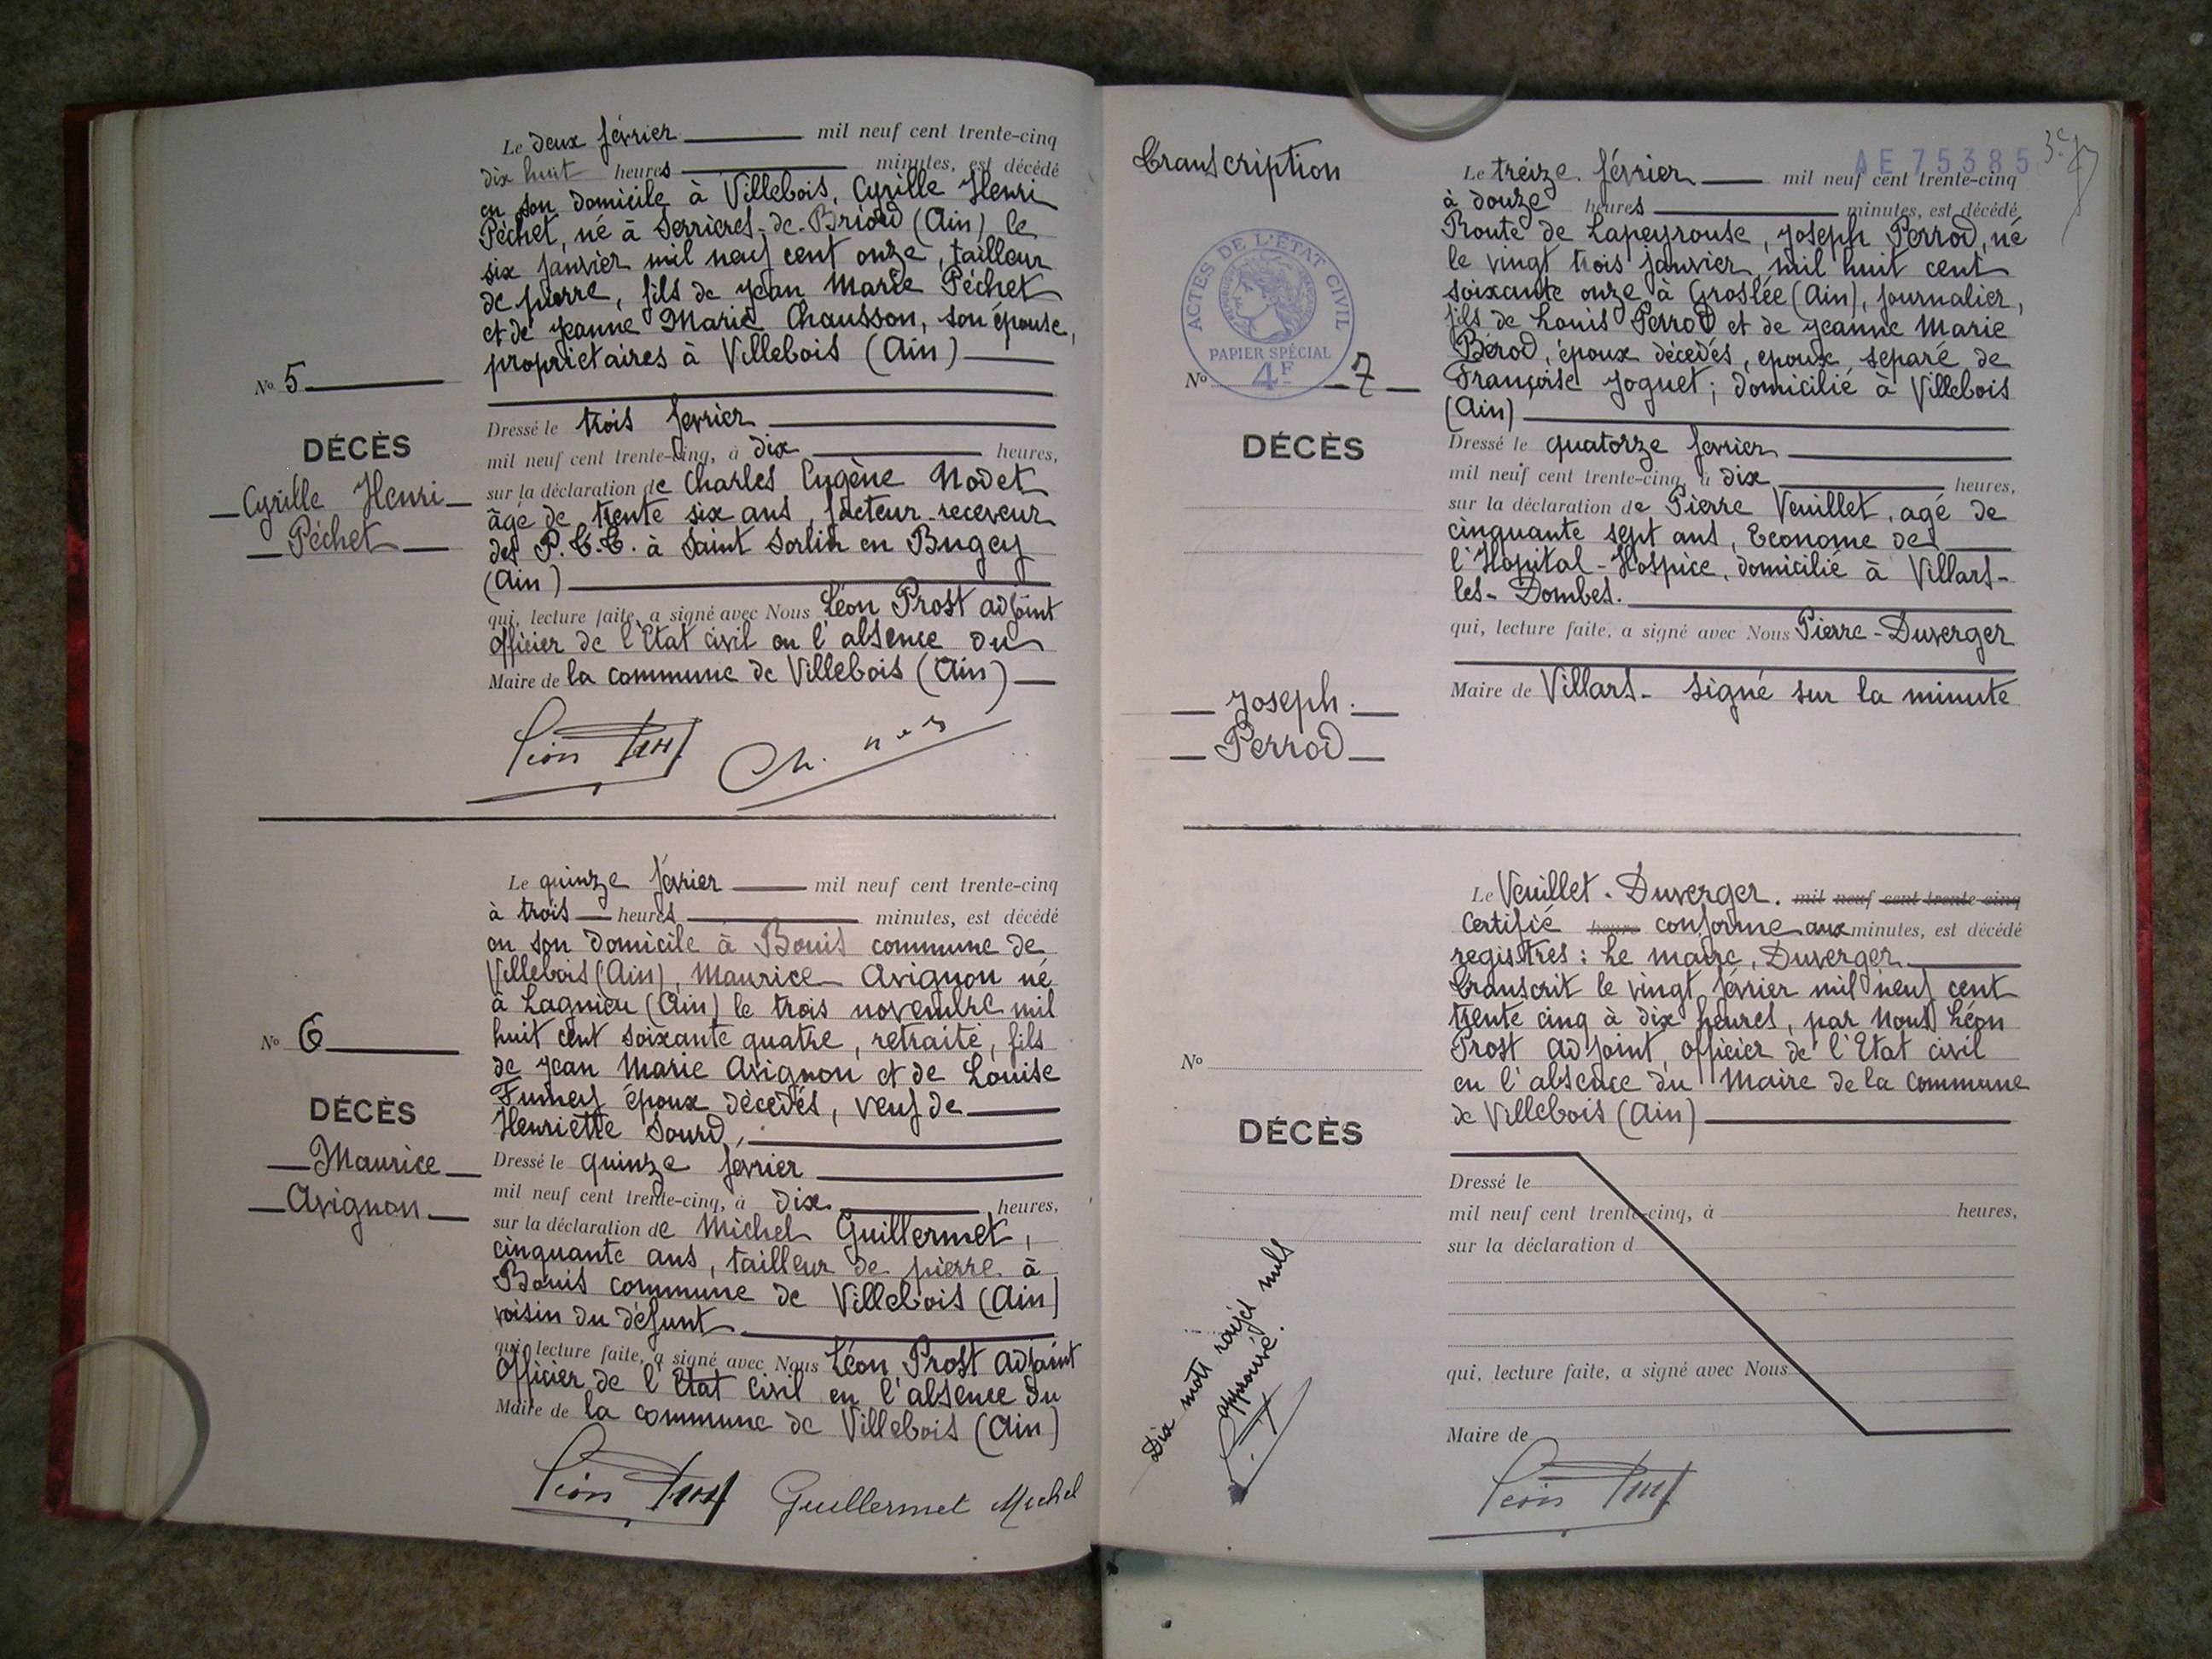 Le deux février mil neuf cent trente-cinq
dix huit heures minutes, est décédé
en son domicile à Villebois, Cyrille Henri
Péchet, né à Serrières-de-Briord (Ain) le
six janvier mil neuf cent onze, tailleur
de pierre, fils de Jean Marie Péchet
et de Jeanne Marie Chausson, son épouse,
propriétaires à Villebois (Ain)
No 5
DÉCÈS
Cyrille Henri
Péchet
Dressé le trois fevrier
mil neuf cent trente-cinq, à dix heures,
sur la déclaration de Charles Eugène Nodet
âgé de trente six ans, facteur-receveur
des P.T.T. à Saint Sorlin en Bugey
(Ain)
qui, lecture faite, a signé avec Nous Léon Prost adjoint
officier de l'Etat civil en l'absence du
Maire de la commune de Villebois (Ain)
Léon Prost Ch.
Le quinze février mil neuf cent trente-cinq
à trois heures minutes, est décédé
en son domicile à Bouis commune de
Villebois (Ain), Maurice Avignon né
à Lagnieu (Ain) le trois novembre mil
huit cent soixante quatre, retraité, fils
de Jean Marie Avignon et de Louise
époux décédés, veuf de
Henriette Sourd,
No 6
DÉCÈS
Maurice
Avignon
Dressé le quinze février
mil neuf cent trente-cinq, à dix heures,
sur la déclaration de Michel Guillermet,
cinquante ans, tailleur de pierre à
Bouis commune de Villebois (Ain)
voisin du défunt
qui, lecture faite, a signé avec Nous Léon Prost adjoint
Officier de l'Etat civil en l'absence du
Maire de la commune de Villebois (Ain)
Léon Prost Guillermet Michel
Transcription
AE 75385
3e
ACTES DE L'ÉTAT CIVIL
PAPIER SPÉCIAL
4F
Le treize février mil neuf cent trente-cinq
à douze heures minutes, est décédé
Route de Lapeyrouse, Joseph Perrod, né
le vingt trois janvier mil huit cent
soixante onze à Groslée (Ain), journalier,
fils de Louis Perrod et de Jeanne Marie
Bérod, époux décédés, époux separé de
Françoise Joguet; domicilié à Villebois
(Ain)
No 7
DÉCÈS
Joseph
Perrod
Dressé le quatorze fevrier
mil neuf cent trente-cinq, à dix heures,
sur la déclaration de Pierre Veuillet, agé de
cinquante sept ans, Econome de
l'Hopital-Hospice, domicilié à Villars-
les-Dombes.
qui, lecture faite, a signé avec Nous Pierre-Duverger
Maire de Villars- signé sur la minute
Le Veuillet. Duverger. mil neuf cent trente-cinq
Certifié heure conforme aux minutes, est décédé
registres: Le maire, Duverger
Transcrit le vingt février mil neuf cent
trente cinq à dix heures, par nous Léon
Prost adjoint, officier de l'Etat civil
en l'absence du Maire de la commune
de Villebois (Ain)
No
DÉCÈS
Dressé le
mil neuf cent trente-cinq, à heures,
sur la déclaration d
qui, lecture faite, a signé avec Nous
Maire de
Dix mots rayés nuls
approuvé.
Léon Prost